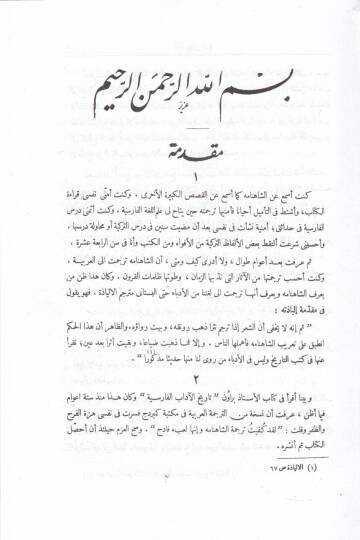 بسم الله الرحمن الرحيم
عزيز
مقدمة
١
كنت أسمع عن الشاهنامه كما أسمع عن القصص الكبيرة الأخرى. وكنت أمنّى نفسى قراءة
الكتاب، وأشتط فى التأميل أحيانا فأمنيها ترجمته حين يتاح لى علم اللغة الفارسية. وكنت أتمنى درس
الفارسية فى حداثتى؛ أمنية نشأت فى نفسى بعد أن مضيت سنين فى درس التركية أو محاولة درسها.
وأحسبنى شرعت ألتقط بعض الألفاظ التركية من الأفواه ومن الكتب وأنا فى سن الرابعة عشرة.
ثم عرفت بعد أعوام طوال، ولا أدرى كيف ومتى، أن الشاهنامه ترجمت الى العربية.
وكنت أحسب ترجمتها من الآثار التى ندّ بها الزمان، وطوتها ظلمات القرون. وكان هذا ظن من
يعرف الشاهنامه ويعرف أنها ترجمت الى لغتنا من الأدباء حتى البستانى مترجم الالياذة. فهو يقول
فى مقدّمة إلياذته :
" ثم إنه لا يخفى أن الشعر إذا ترجم نثرا ذهب رونقه، وبهت رواؤه. والظاهر أن هذا الحكم
انطبق على تعريب الشاهنامه فأهملها الناس. وإلا فما ذهبت ضياعا، وبقيت أثرا بعد عين؛ نقرأ
عنها فى كتب التاريخ وليس فى الأدباء من روى لنا منها حديثا مذكورا".
٢
وبينا أقرأ فى كتاب الأستاذ براون "تاريخ الآداب الفارسية" وكان هذا منذ ستة أعوام
فيما أظن، عرفت أن نسخة من الترجمة العربية فى مكتبة كمبردج فسرت فى نفسى هزة الفرح
والظفر وقلت : "لقد كُفيتُ ترجمة الشاهنامه وإنها لعبء فادح". وصح العزم حينئذ أن أحصّل
الكتاب ثم أنشره.
(١) الالياذة ص ٦٧